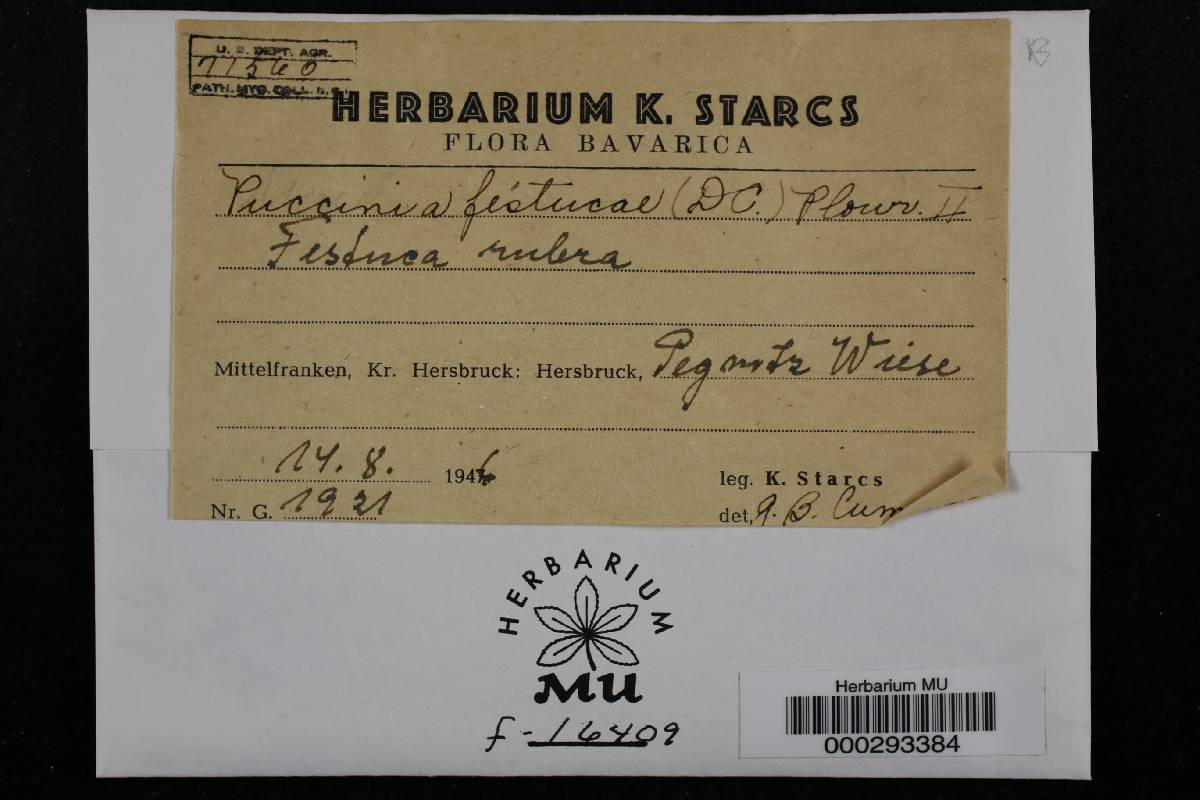 U. S. DEPT. AGR.
71560
PATH. MYC. COLL. N.
HERBARIUM K. STARCS
FLORA BAVARICA
Puccinia festucae (DC.) Plowr. II
Festuca rubra
Mittelfranken, Kr. Hersbruck: Hersbruck, Pegnitz Wiese
14. 8. 1946
leg. K. Starcs
Nr. G. 1921
det. G. B. Cum
HERBARIUM
MU
f-16409
Herbarium MU
000293384